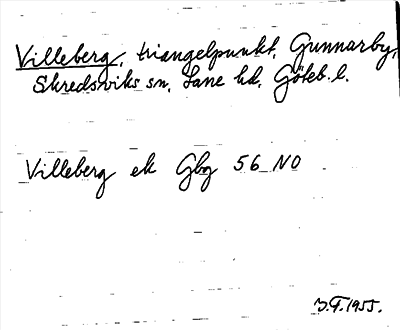 Villeberg, triangelpunkt, Gunnarby,
Skredsviks sn, Lane hd, Göteb. l.
Villeberg ek Gbg 56 NO
J.F. 1955.